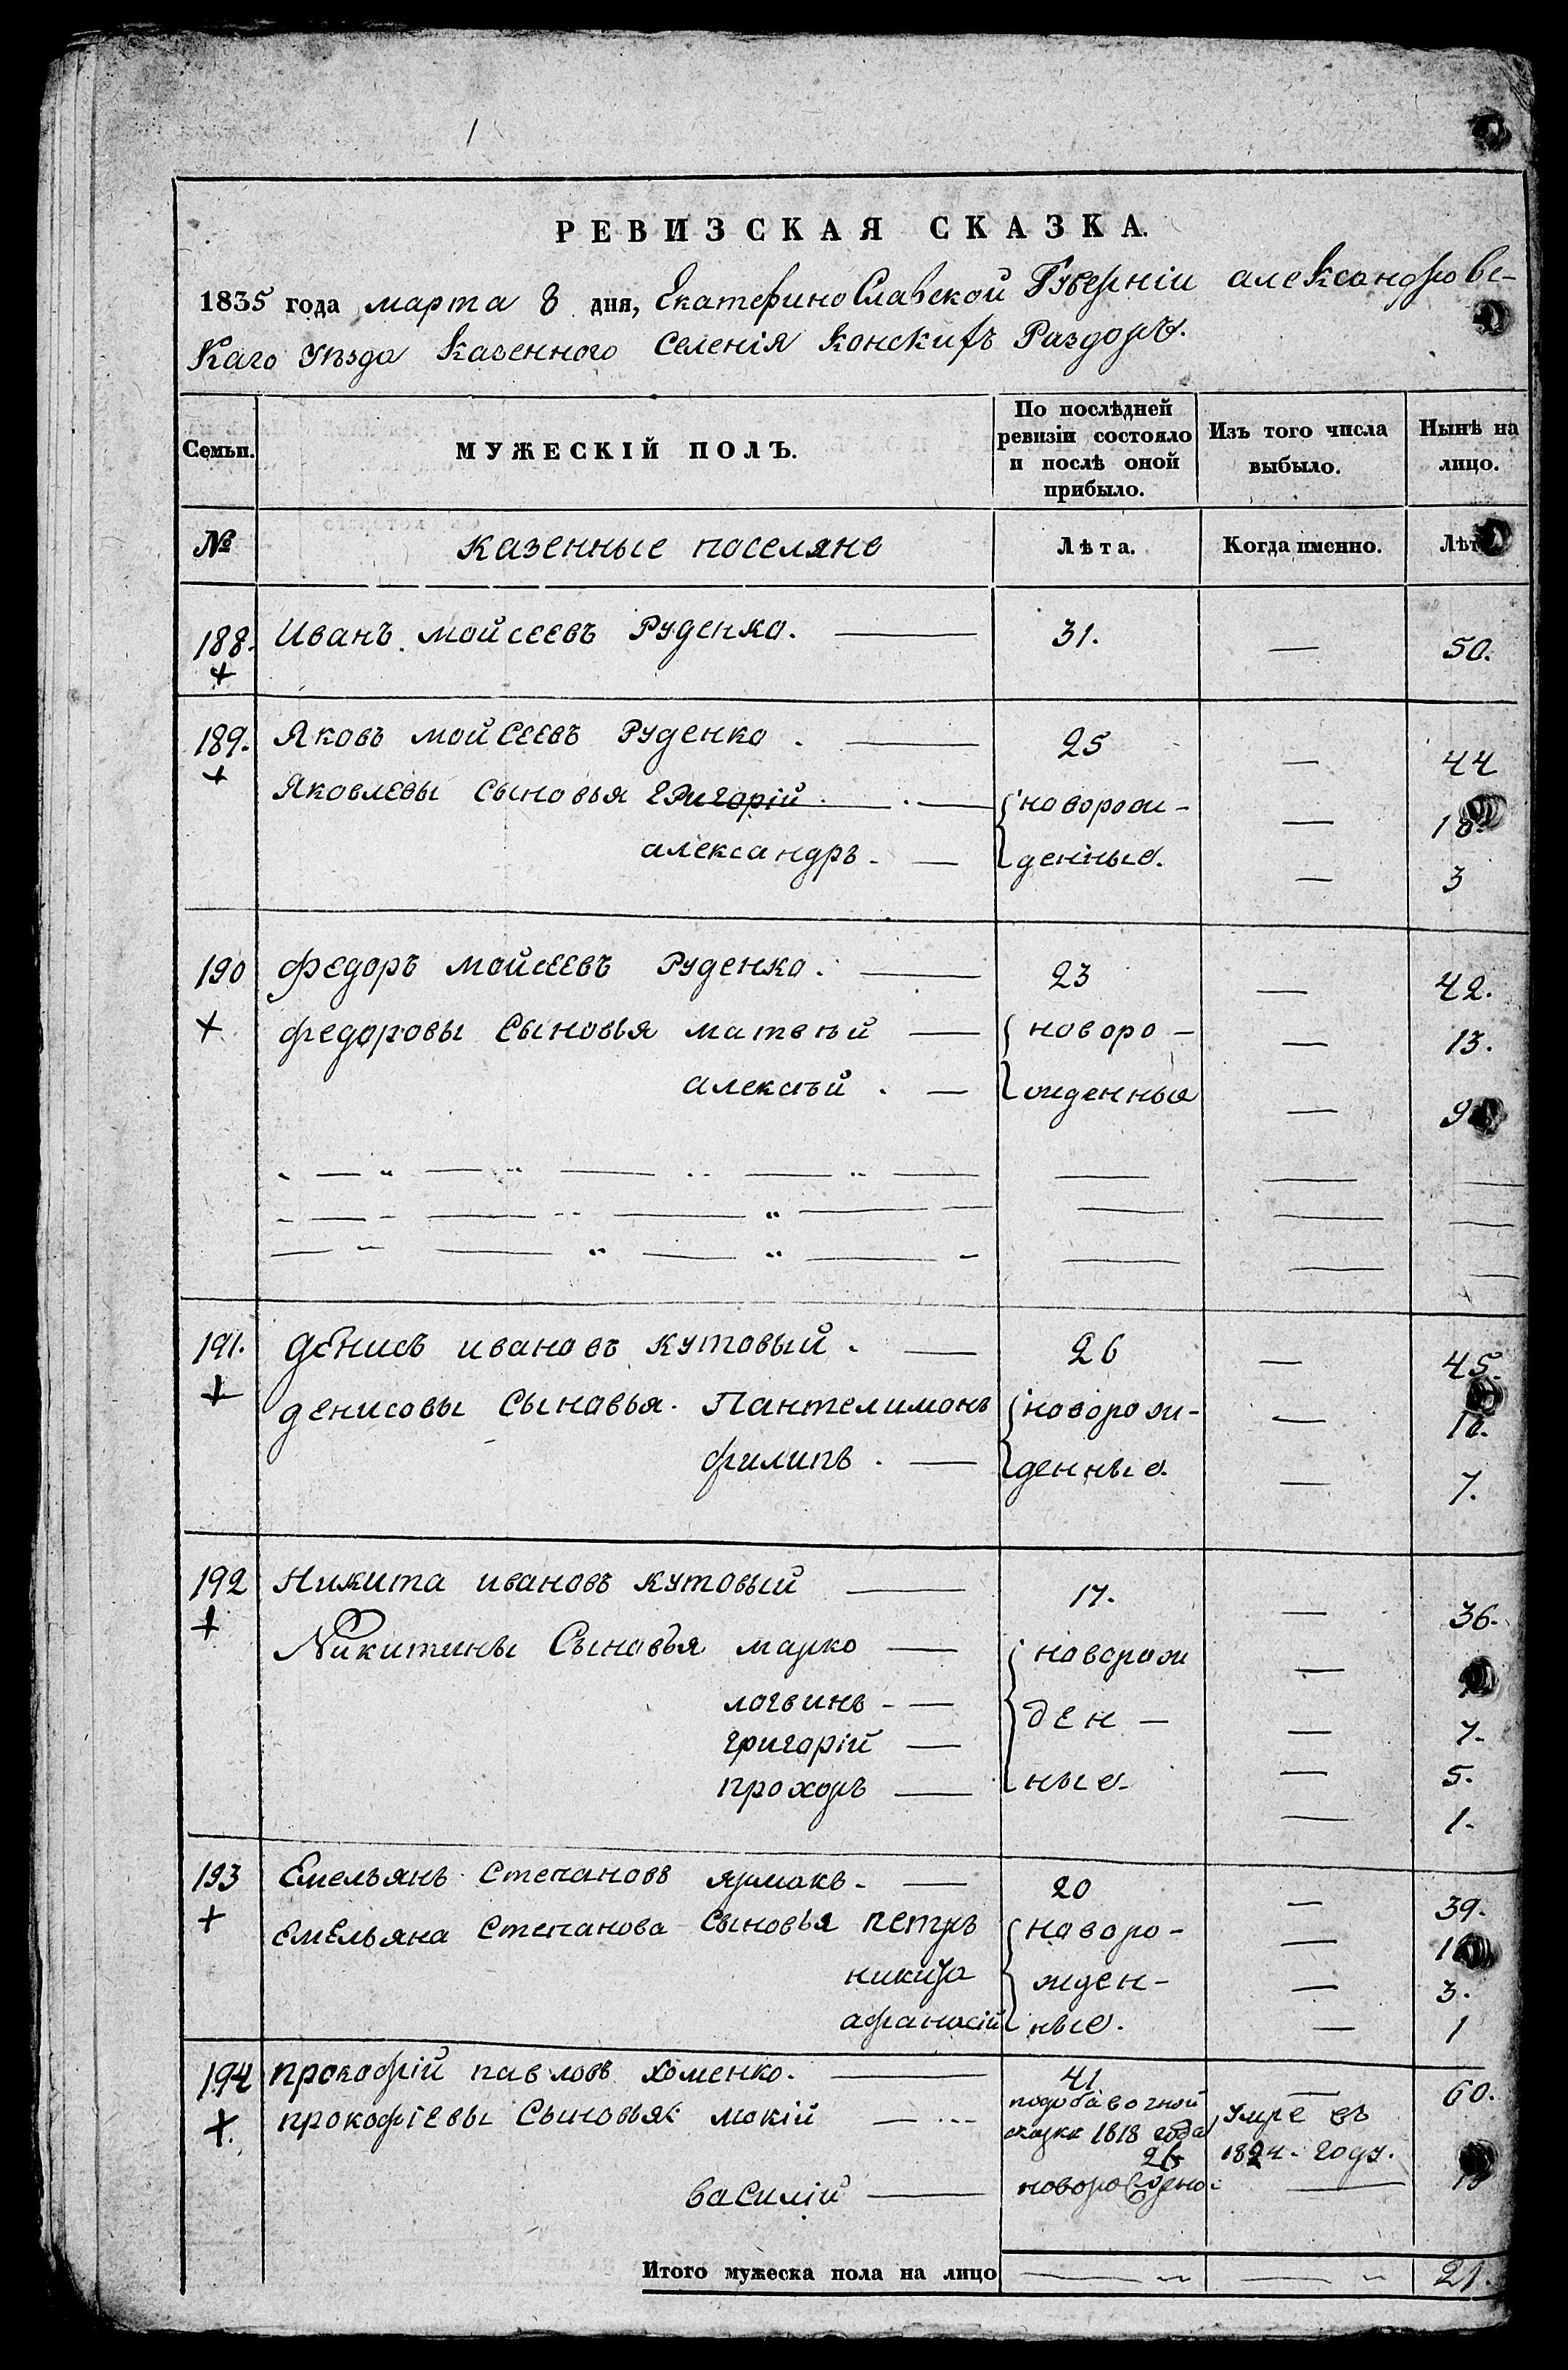 РЕВИЗСКАЯ СКАЗКА.
1835 года марта 8 дня, Екатеринославской Губерніи александровс-
каго уѣзда казенного селенія конскихъ Раздоръ.
Семьи.
МУЖЕСКІЙ ПОЛЪ.
По послѣдней
ревизіи состояло
и послѣ оной
прибыло.
Изъ того числа
выбыло.
Нынѣ на
лицо.
№ казенные поселяне Лѣта. Когда именно.
188. Иванъ моисеевъ Руденко. — 31. — 50.
+
189. Яковъ мойсеевъ Руденко. — 25 — 44
+ Яковлевы сыновья григорій — новорож- — 18.
александръ. — денные. — 3
190 федоръ мойсеевъ Руденко. — 23 — 42.
+ федоровы сыновья матвѣй — новоро- — 13.
алексѣй. — жденные — 9
191. денисъ ивановъ кутовый. — 26 — 45.
+ денисовы сыновья. Пантелимонъ новорож- —
филипъ. — денные. — 7.
192 Никита ивановъ кутовый — 17. — 36.
+ Никитины Сыновья марко — новорож —
логвинъ — ден — — 7.
григорій — — 5.
прохоръ — ные. — 1.
193 Емельянъ Степановъ ярмакъ. — 20 — 39.
+ емельяна Степанова сыновья петръ новоро- —
никита жден- — 3.
афанасій ные. — 1
194 прокофій павловъ хоменко. — 41 — 60.
+ прокофіевы сыновья: мокій — подобавочной
сказке 1818 года умре въ
26 1824. году.
василій — новорожденъ: —
Итого мужеска пола на лицо — — 21.